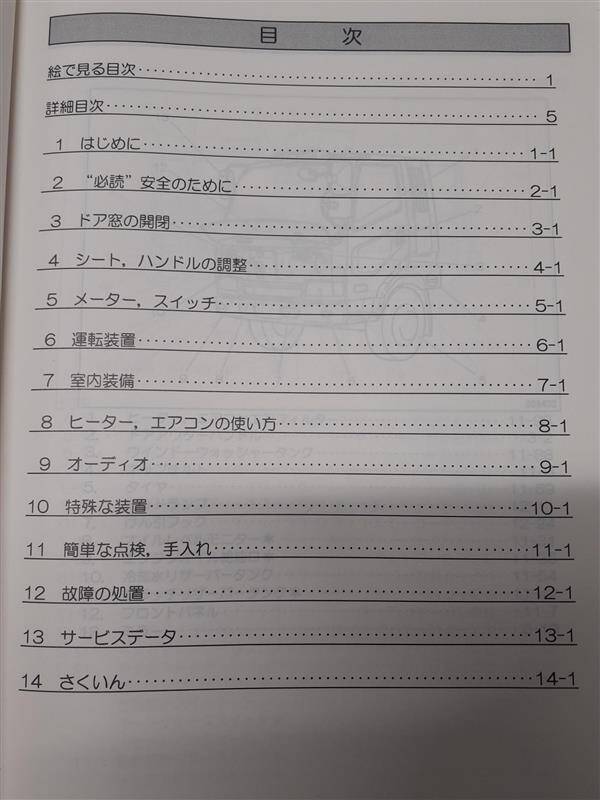 目 次
絵で見る目次 1
詳細目次 5
1 はじめに 1-1
2 “必読”安全のために 2-1
3 ドア窓の開閉 3-1
4 シート，ハンドルの調整 4-1
5 メーター，スイッチ 5-1
6 運転装置 6-1
7 室内装備 7-1
8 ヒーター，エアコンの使い方 8-1
9 オーディオ 9-1
10 特殊な装置 10-1
11 簡単な点検，手入れ 11-1
12 故障の処置 12-1
13 サービスデータ 13-1
14 さくいん 14-1